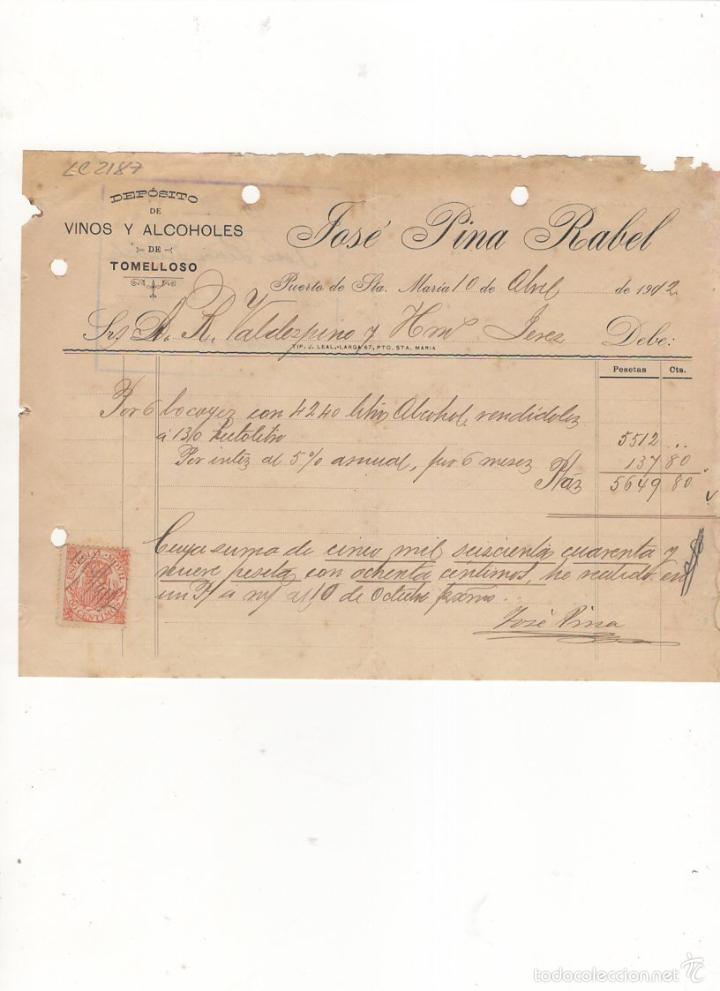 LC2187
DEPÓSITO
DE
VINOS Y ALCOHOLES
DE
TOMELLOSO
José Pina Rabel
Puerto de Sta. María 10 de Abril de 1902
Srs A. R. Valdespino y Hmº Jerez Debe:
TIP. J. LEAL, LARGA 67, PTO. STA. MARIA
Pesetas Cts.
Por 6 bocoyes con 4240 litros Alcohol, vendidoles
á 130 hectolitro 5512 ...
Por intés al 5% anual, por 6 meses 137 80
Ptas 5649 80
Cuya suma de cinco mil seiscientas cuarenta y
nueve pesetas con ochenta centimos, he recibido en
un P/ a m/ al 10 de Octubre próximo.
José Pina
todocoleccion.net